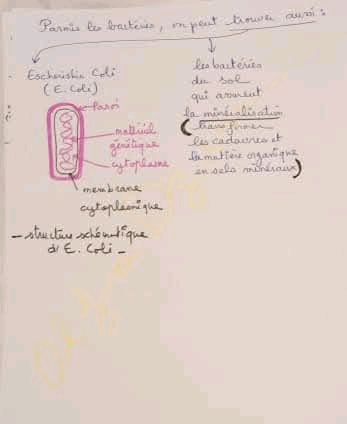 Parmis les bactéries, on peut trouver aussi :
Escherishia Coli
(E. Coli)
Paroi
matériel
génétique
cytoplasme
membrane
cytoplasmique
- structure schématique
d'E. Coli -
les bactéries
du sol
qui assurent
la minéralisation
(transformer
les cadavres et
la matière organique
en sels minéraux)